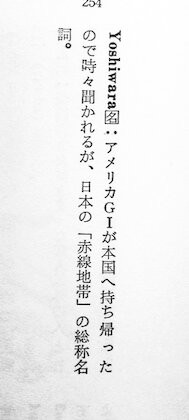 254
Yoshiwara图：アメリカGIが本国へ持ち帰った
ので時々聞かれるが、日本の「赤線地帯」の総称名
詞。